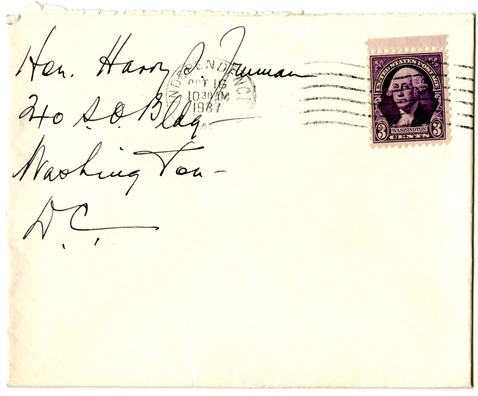 Hon. Harry S. Truman
240 S.O. Bldg
Washington -
D.C.
INDEPENDENCE
OCT 16
10 30 AM
1937
UNITED STATES POSTAGE
3 WASHINGTON 3
CENTS